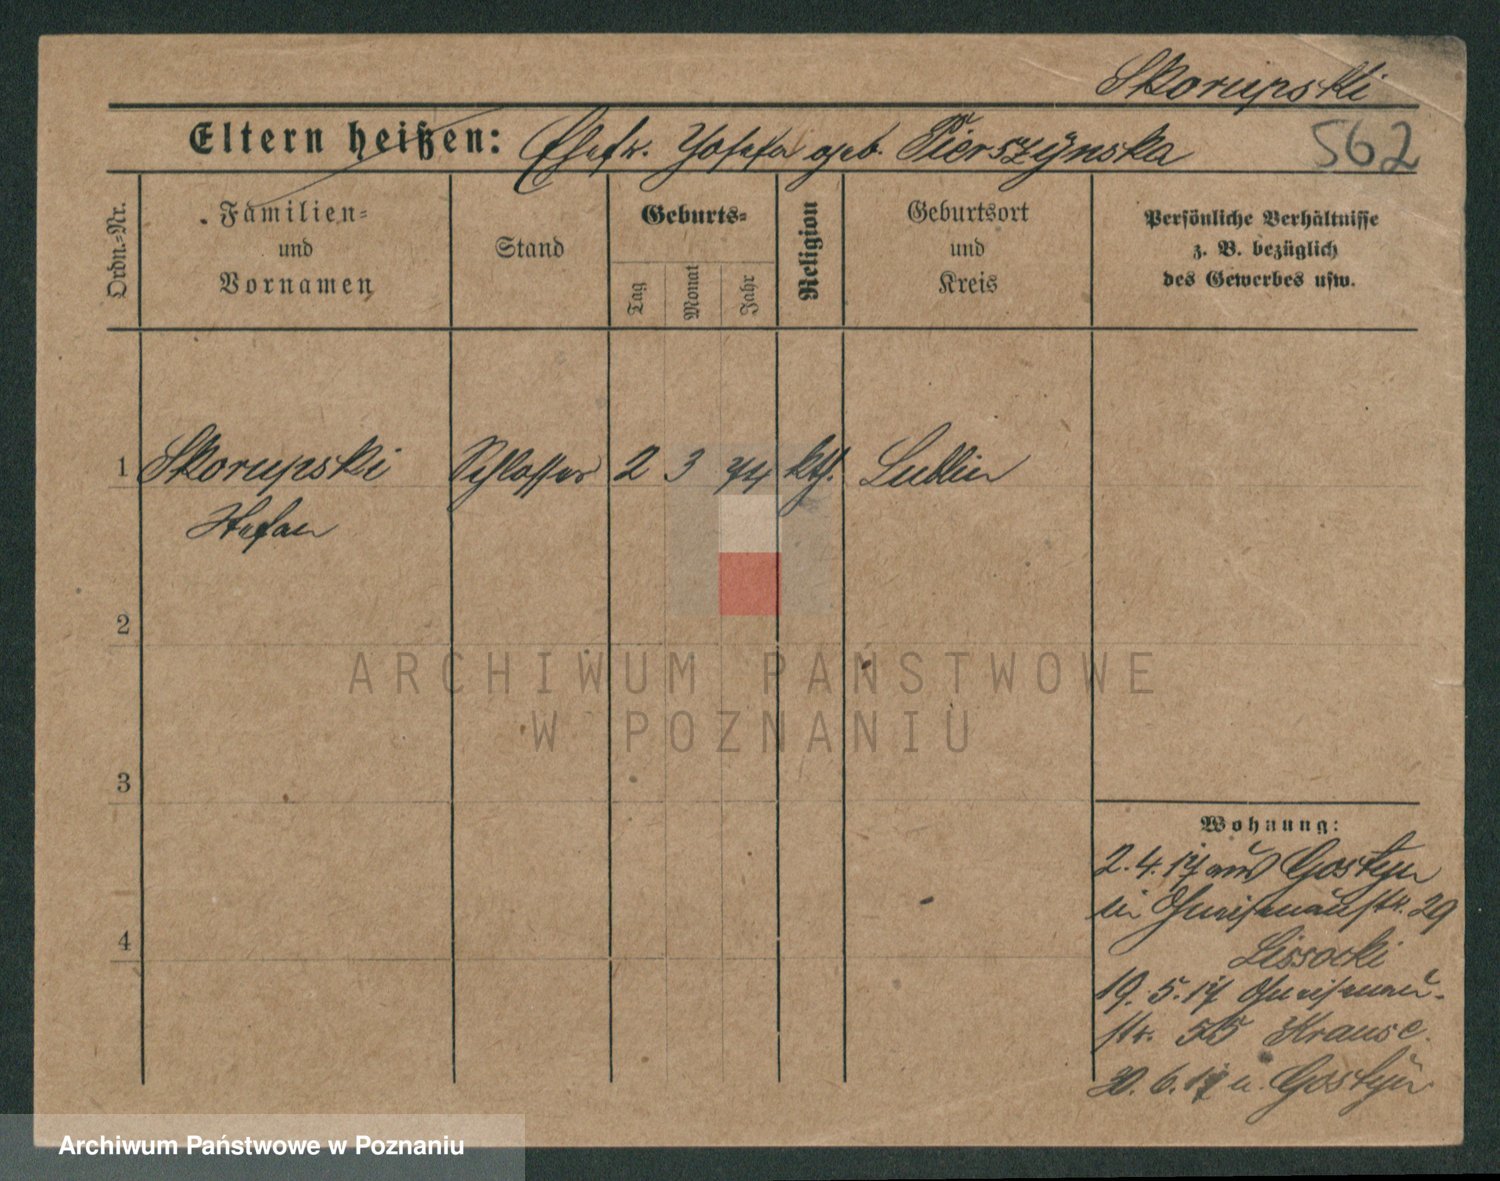 Skorupski
Eltern heißen: Ehefr. Josefa geb. Pierszynska
562
Ordn.=Nr.
Familien=
und
Vornamen
Stand
Geburts=
Tag
Monat
Jahr
Religion
Geburtsort
und
Kreis
Persönliche Verhältnisse
z. B. bezüglich
des Gewerbes usw.
1 Skorupski Schlosser 2 3 74 kth. Lublin
Stefan
2
ARCHIWUM PAŃSTWOWE
W POZNANIU
3
Wohnung:
2.4.17 aus Gostyn
in Gneisenaustr. 29
Lissocki
4
19.5.17 Gneisenau-
str. 55 Krause.
30.6.17 n. Gostyn
Archiwum Państwowe w Poznaniu